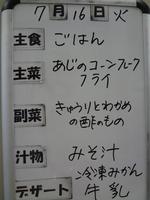 7月16日火
主食 ごはん
主菜 あじのコーンフレーク
フライ
副菜 きゅうりとわかめ
の酢のもの
汁物 みそ汁
デザート 冷凍みかん
牛乳